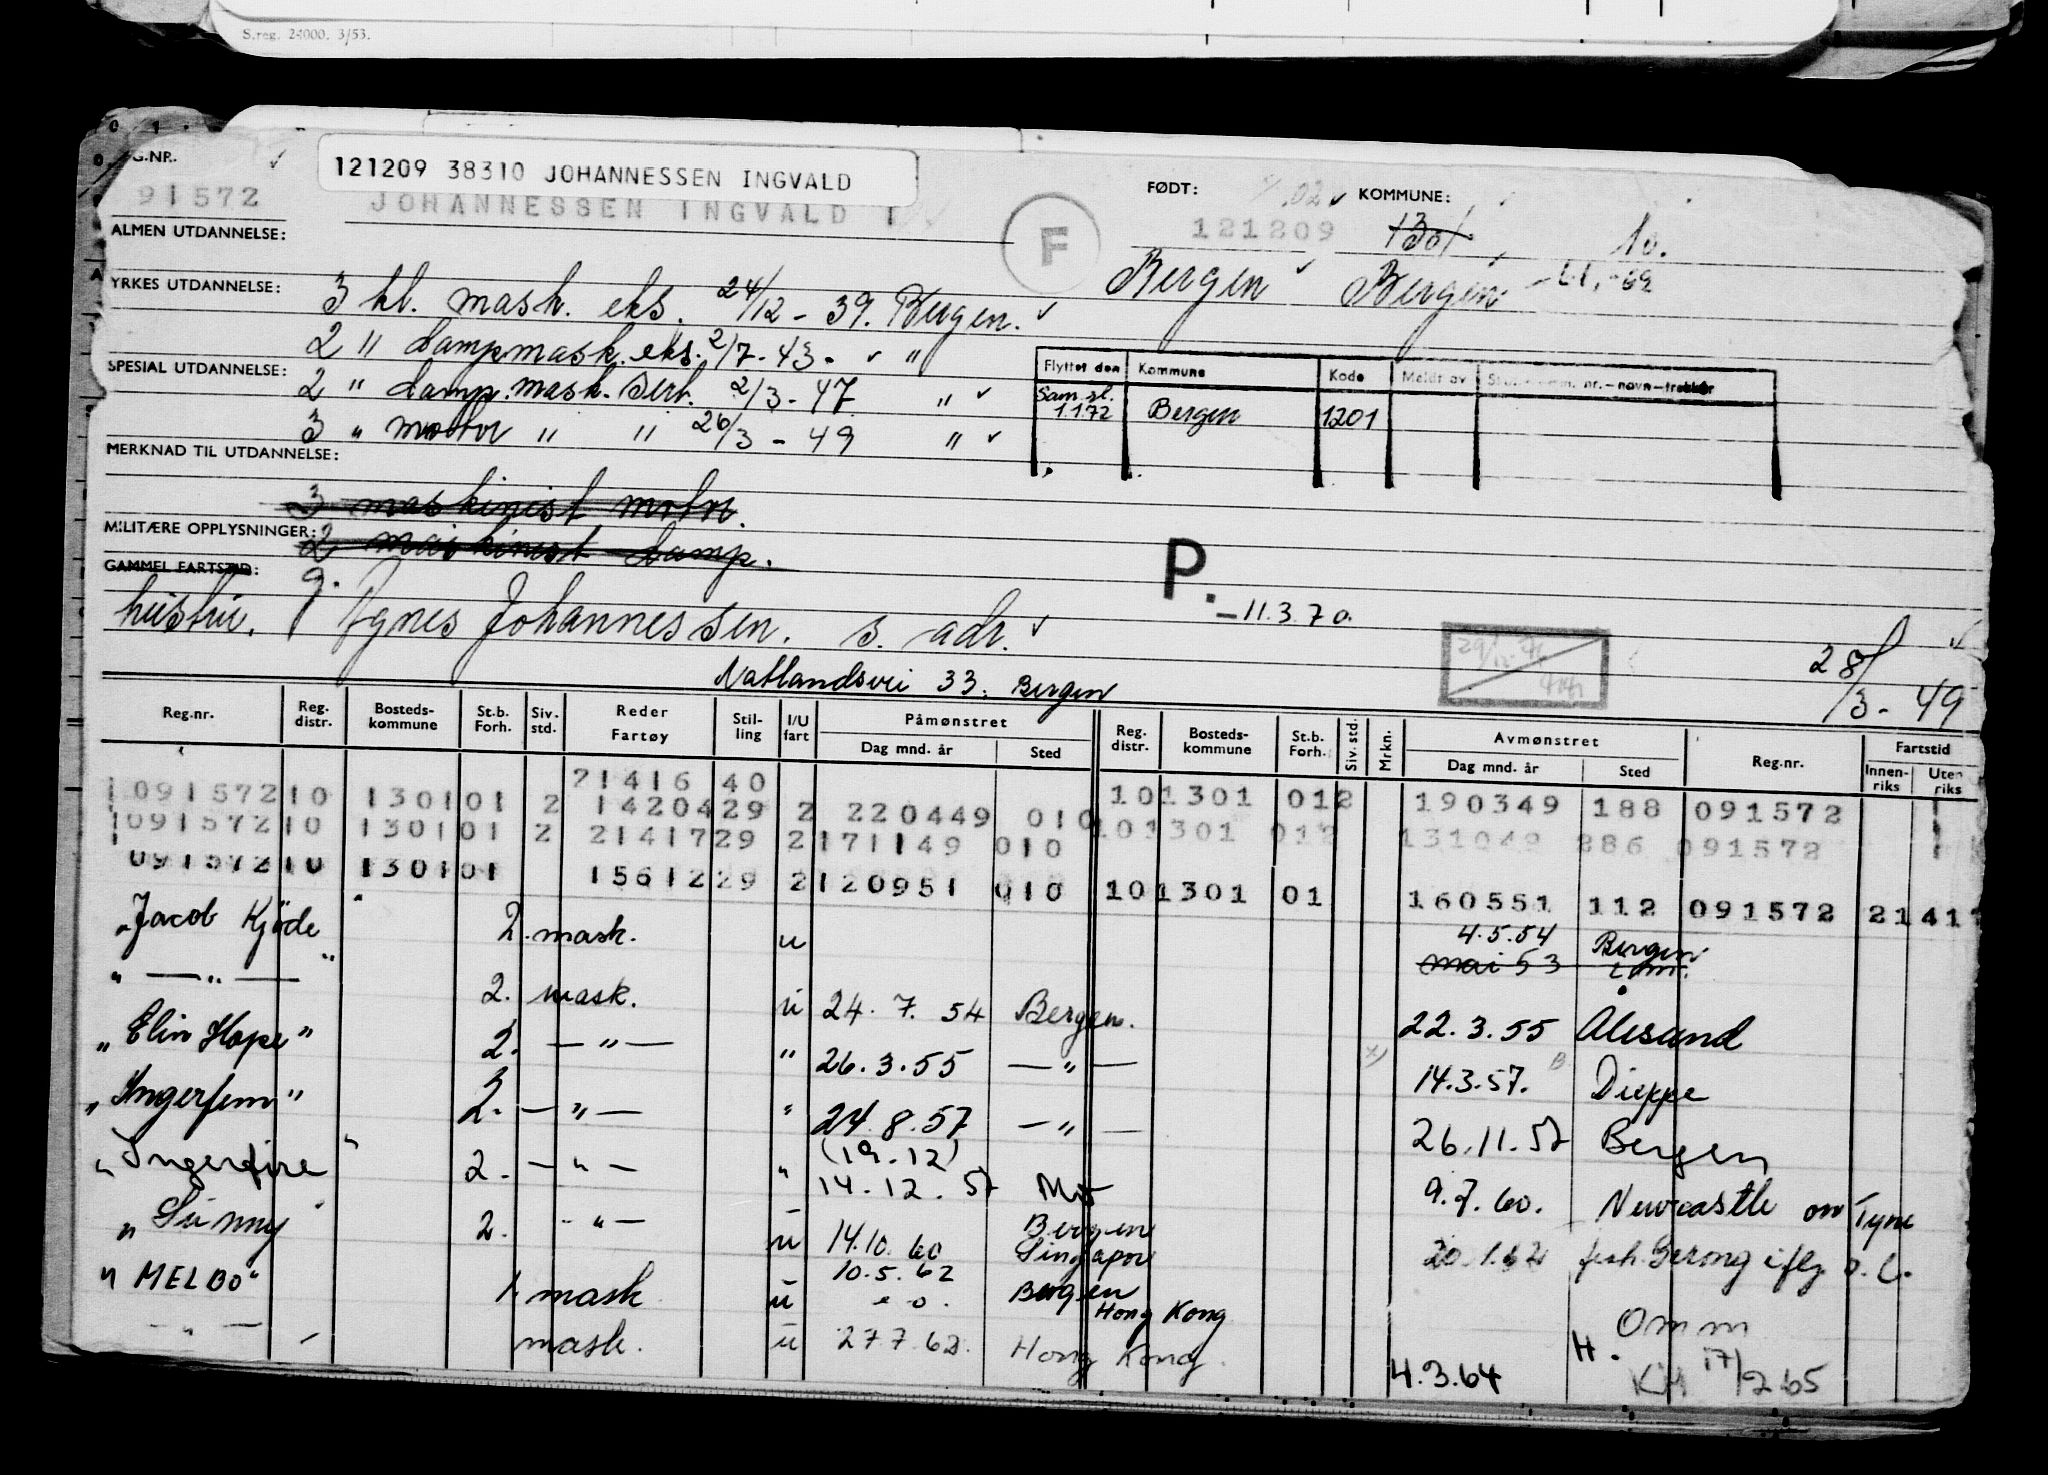 S.reg. 24000. 3/53.
G.NR.
121209 38310 JOHANNESSEN INGVALD
91572
JOHANNESSEN INGVALD I
F
FØDT: 02
121209
KOMMUNE:
1301
10.
ALMEN UTDANNELSE:
Bergen Bergen
YRKES UTDANNELSE:
3 kl. mask. eks. 24/12 - 39. Bergen.
2 " dampmask. eks. 2/7 - 43 - "
SPESIAL UTDANNELSE:
2 " damp. mask. sert. 2/3 - 47 "
3 " motor " " 26/3 - 49 "
Flyttet den Kommune Kode Meldt av
Sam.sl. 1.1.72 Bergen 1201
MERKNAD TIL UTDANNELSE:
3 maskinist motor.
MILITÆRE OPPLYSNINGER:
2 maskinist damp.
GAMMEL FARTSTID: 9.
P. - 11.3.70.
hustru. Agnes Johannessen. s. adr.
Natlandsvei 33. Bergen
28/3 - 49
Reg.nr. Reg. distr. Bosteds-kommune St.b. Forh. Siv. std. Reder Fartøy Stil-ling I/U fart Påmønstret Dag mnd. år Sted Reg. distr. Bosteds-kommune St.b. Forh. Siv. std. Mrkn. Avmønstret Dag mnd. år Sted Reg.nr. Fartstid Innen-riks Uten riks
21416 40 101301 012 190349 188 091572
1 091572 10 1301 01 2 14204 29 2 220449 010 101301 012 131049 286 091572
1 091572 10 1301 01 2 21417 29 2 171149 010
091572 10 1301 01 15612 29 2 120951 010 101301 01 160551 112 091572 21411
"Jacob Kjöde" 2. mask. u 4.5.54 Bergen
mai 53
" — " — 2. mask. u 24. 7. 54 Bergen. 22.3.55 Ålesund
"Elin Hope" 2. — " — " 26.3.55 — " — 14.3.57. Dieppe
"Ingerfem" 2. — " — " 24.8.57 — " — 26.11.57 Bergen
(19.12)
"Ingerfire" 2. — " — " 14.12.57 9.7.60. Newcastle on Tyne
"Sunny" 2. - " — u 14.10.60 Bergen Singapore 20.1.62
"MELBO" 1. mask u 10.5.62 Bergen Hong Kong Omm
— " — mask. u 27.7.62. Hong Kong. 4.3.64 H. 17/2 65